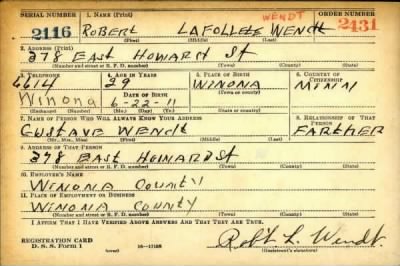 SERIAL NUMBER 1. NAME (Print) WENDT ORDER NUMBER
2116 ROBERT LAFOLLETE WENDT 2431
(First) (Middle) (Last)
2. ADDRESS (Print)
378 EAST HOWARD St
(Number and street or R. F. D. number) (Town) (County) (State)
3. TELEPHONE 4. AGE IN YEARS 5. PLACE OF BIRTH 6. COUNTRY OF CITIZENSHIP
6614 29 WINONA MINN
Winona DATE OF BIRTH
6-22-11
(Exchange) (Number) (Mo.) (Day) (Yr.) (Town or county) (State or country)
7. NAME OF PERSON WHO WILL ALWAYS KNOW YOUR ADDRESS 8. RELATIONSHIP OF THAT PERSON
GUSTAVE WENDt FARTHER
(Mr., Mrs., Miss) (First) (Middle) (Last)
9. ADDRESS OF THAT PERSON
378 EAST HOWARD St
(Number and street or R. F. D. number) (Town) (County) (State)
10. EMPLOYER'S NAME
WINONA COUNTY
11. PLACE OF EMPLOYMENT OR BUSINESS
WINONA COUNTY
(Number and street or R. F. D. number) (Town) (County) (State)
I AFFIRM THAT I HAVE VERIFIED ABOVE ANSWERS AND THAT THEY ARE TRUE.
REGISTRATION CARD
D. S. S. Form 1 16-17105 Robt L. Wendt
(Registrant's signature)